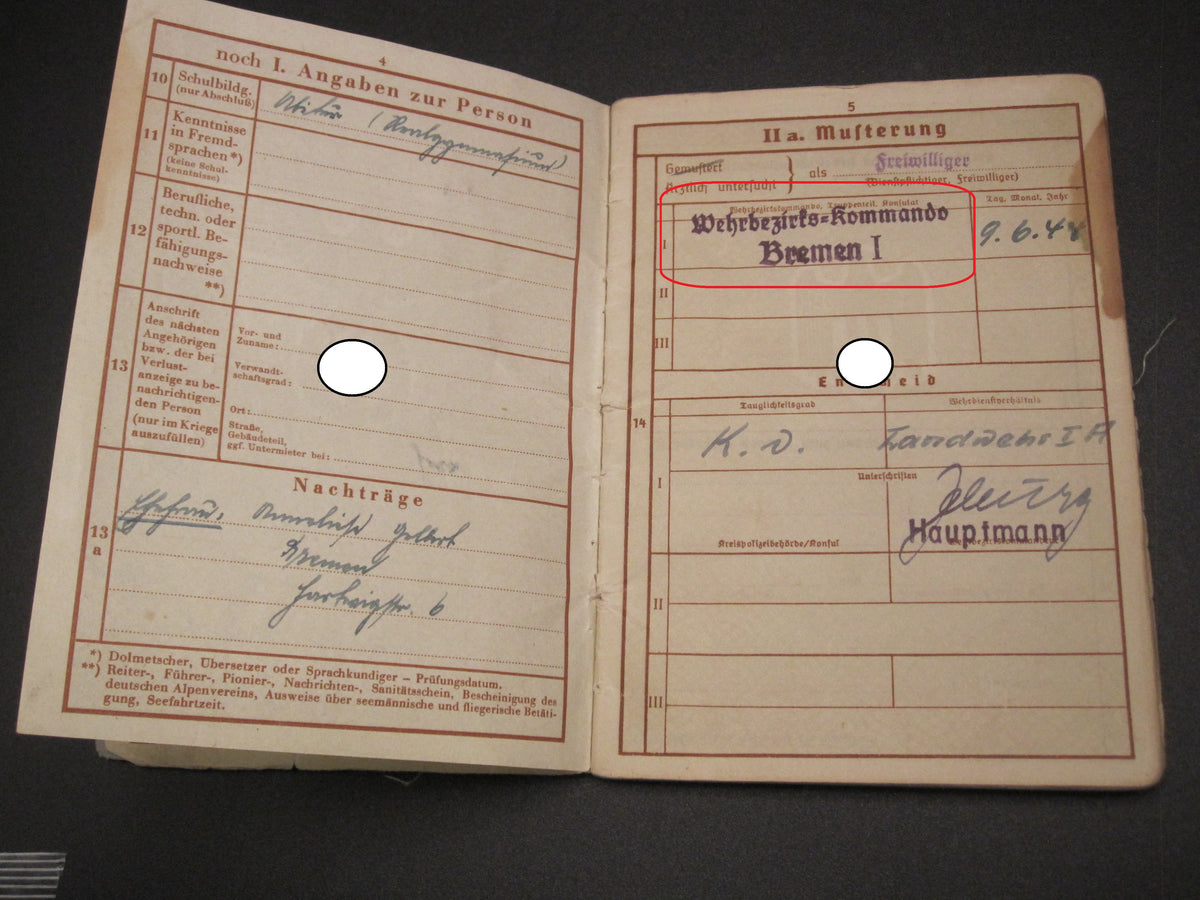 4
noch I. Angaben zur Person
10
Schulbildg.
(nur Abschluß)
Abitur (Realgymnasium)
11
Kenntnisse
in Fremd-
sprachen*)
(keine Schul-
kenntnisse)
12
Berufliche,
techn. oder
sportl. Be-
fähigungs-
nachweise
**)
13
Anschrift
des nächsten
Angehörigen
bzw. der bei
Verlust-
anzeige zu be-
nachrichtigen-
den Person
(nur im Kriege
auszufüllen)
Vor- und
Zuname:
Verwandt-
schaftsgrad:
Ort:
Straße,
Gebäudeteil,
ggf. Untermieter bei:
Nachträge
13
a
Ehefrau: Anneliese
Bremen
6
*) Dolmetscher, Übersetzer oder Sprachkundiger – Prüfungsdatum.
**) Reiter-, Führer-, Pionier-, Nachrichten-, Sanitätsschein, Bescheinigung des
deutschen Alpenvereins, Ausweise über seemännische und fliegerische Betäti-
gung, Seefahrtzeit.
5
IIa. Musterung
Gemustert
Ärztlich untersucht } als Freiwilliger
(Dienstpflichtiger, Freiwilliger)
Wehrbezirkskommando, Truppenteil, Konsulat
Tag, Monat, Jahr
I
Wehrbezirks-Kommando
Bremen I
9.6.44
II
III
14
Tauglichkeitsgrad
Wehrdienstverhältnis
K. v. Landwehr I
I
Unterschriften
Hauptmann
Kreispolizeibehörde/Konsul
II
III